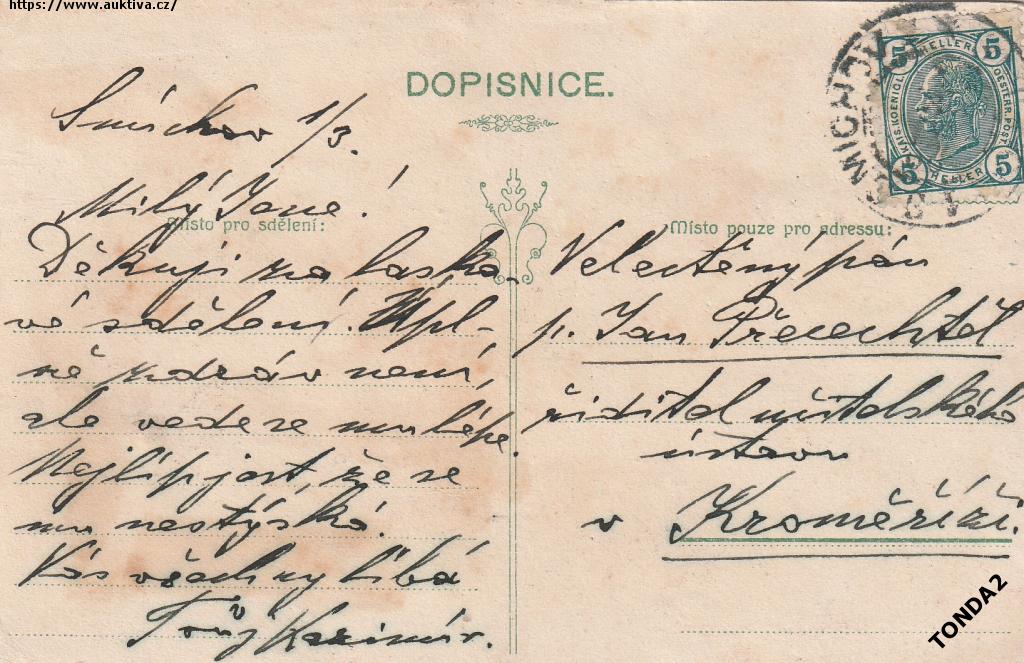 https://www.auktiva.cz/
DOPISNICE.
Smíchov 1/3.
Milý Jane!
Místo pro sdělení:
Děkuji za laska-
vé sdělení. Úpl-
ně zdráv není,
ale vede se mu lépe.
Nejlíp jest, že se
mu nestýská.
Vás všechny líbá
Tvůj Kazimír.
Místo pouze pro adressu:
Velectěný pán
p. Jan Přecechtěl
řiditel učitelského
ústavu
v Kroměříži.
SMICHOV
KAIS. KOENIGL. OESTERR. POST
5 HELLER 5
5 HELLER 5
TONDA2